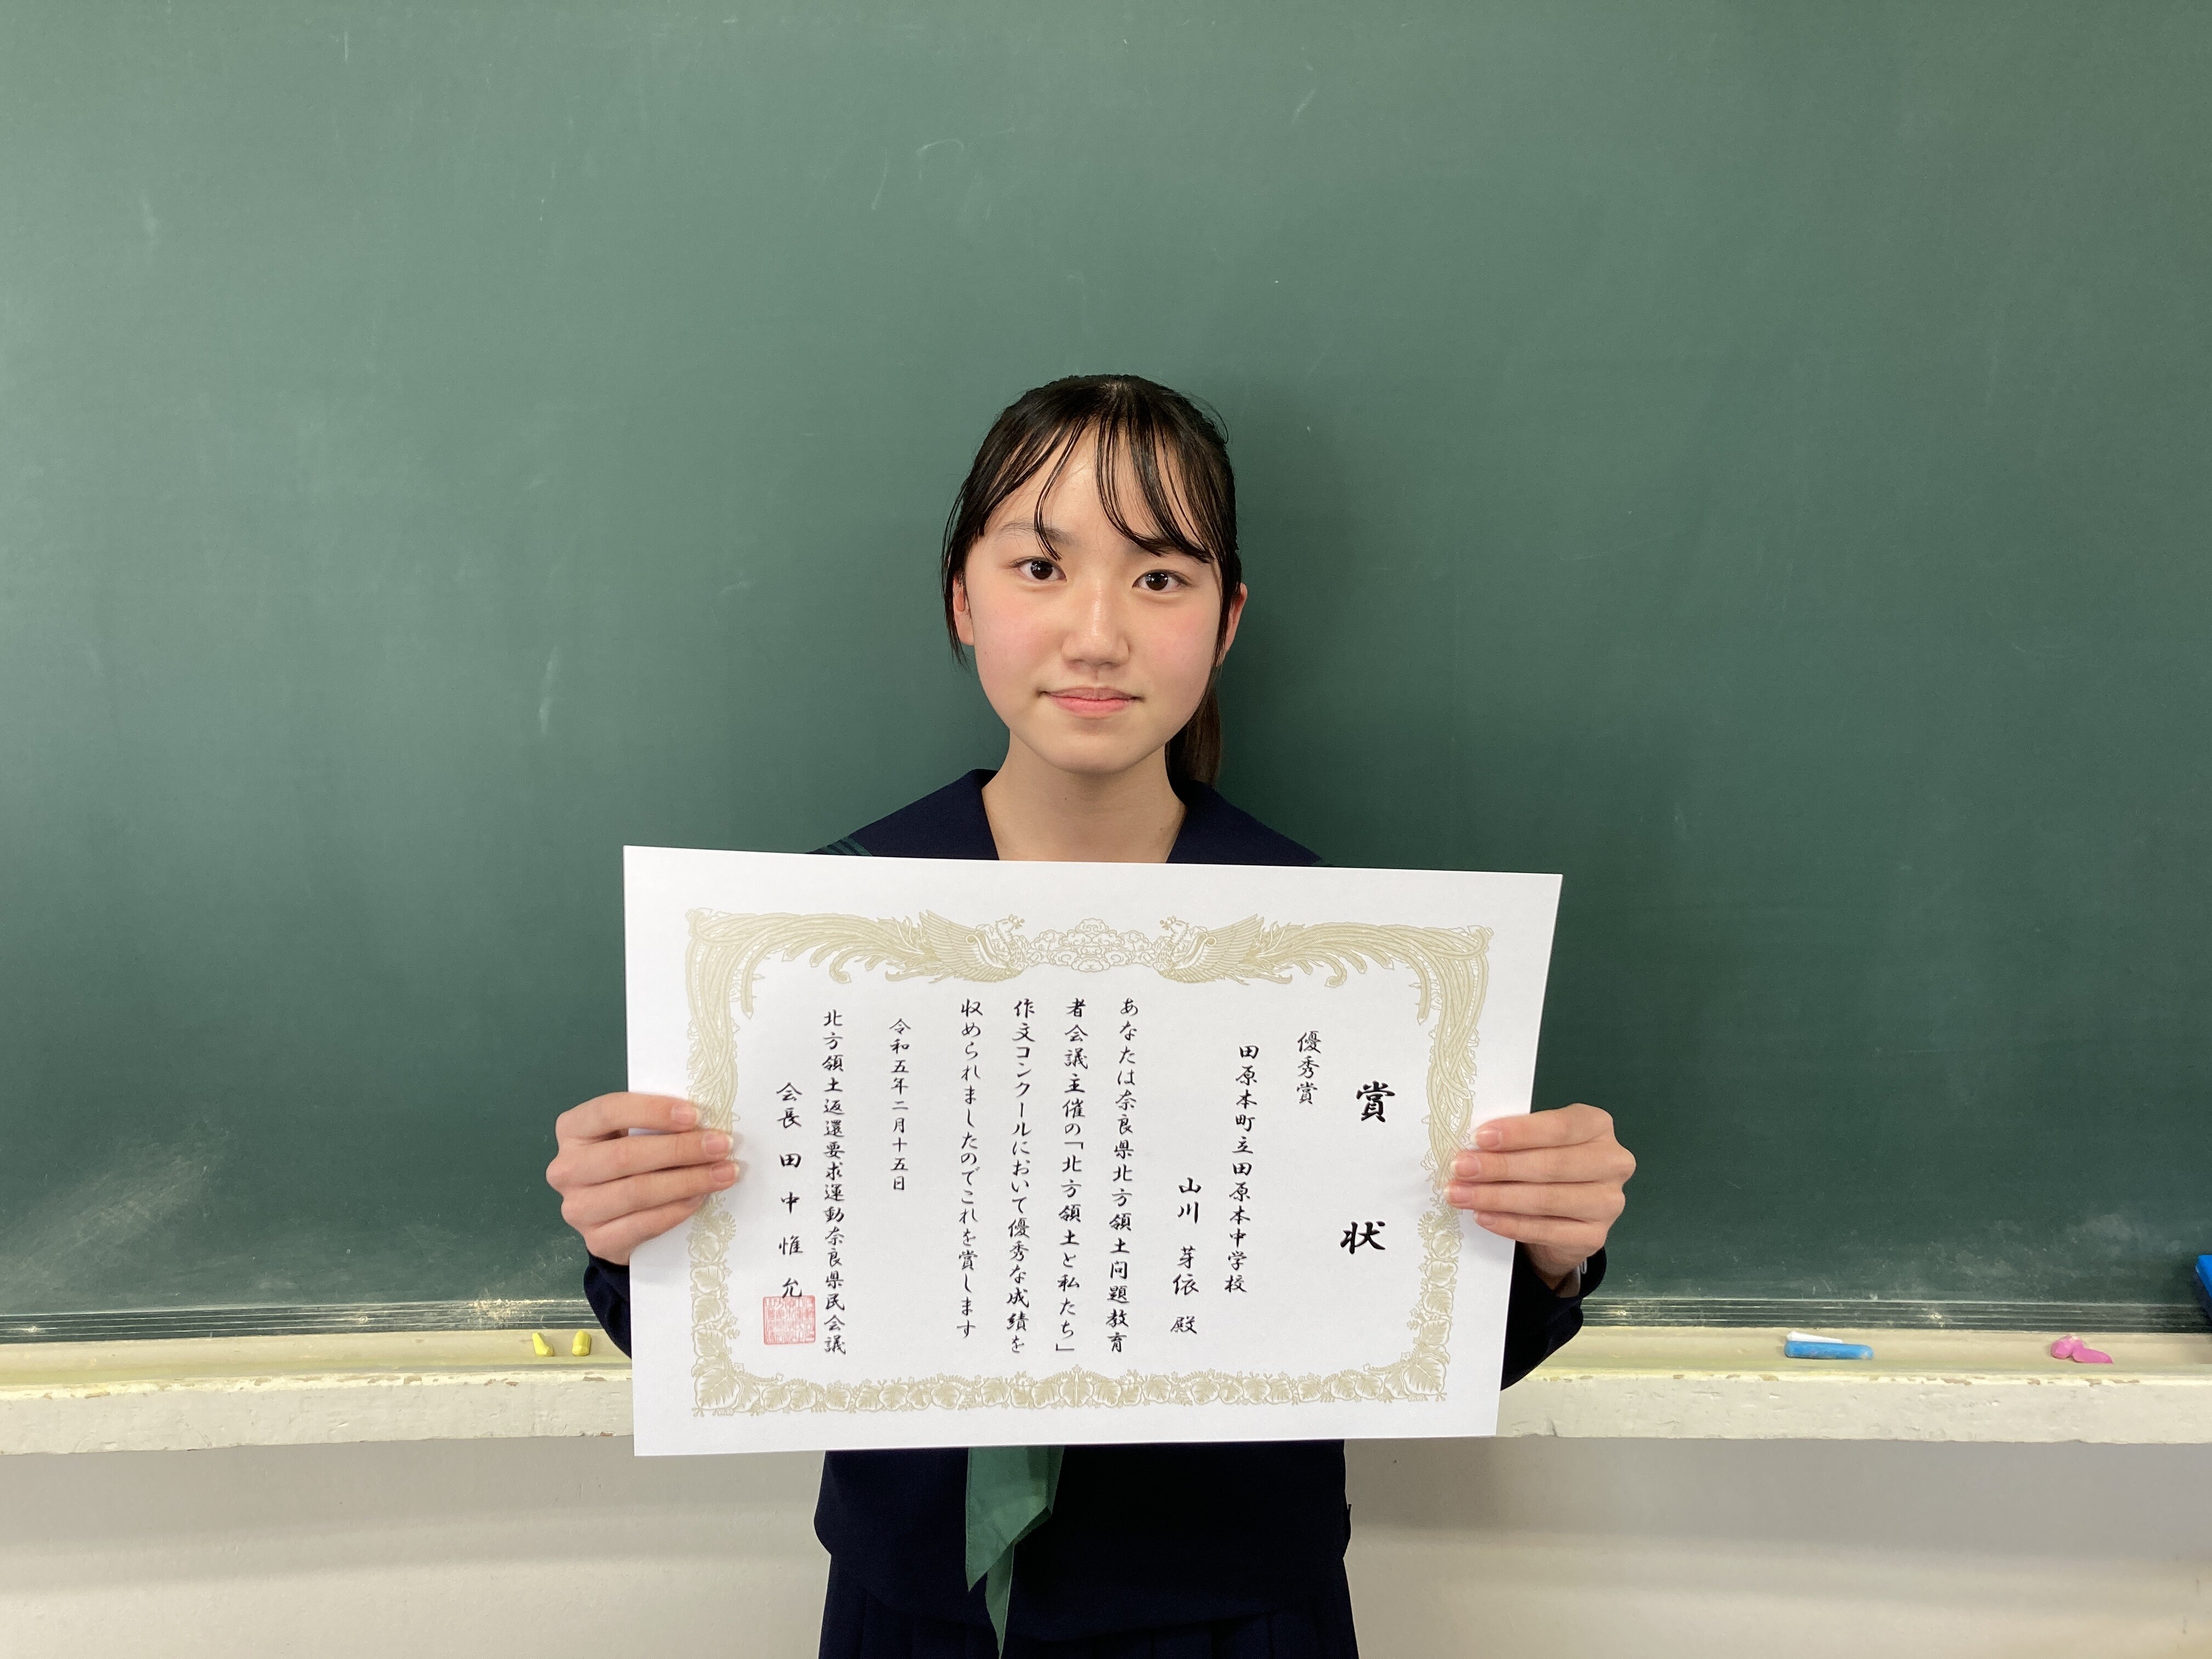 賞状
優秀賞
田原本町立田原本中学校
山川 芽依 殿
あなたは奈良県北方領土問題教育
者会議主催の「北方領土と私たち」
作文コンクールにおいて優秀な成績を
収められましたのでこれを賞します
令和五年二月十五日
北方領土返還要求運動奈良県民会議
会長 田中惟允